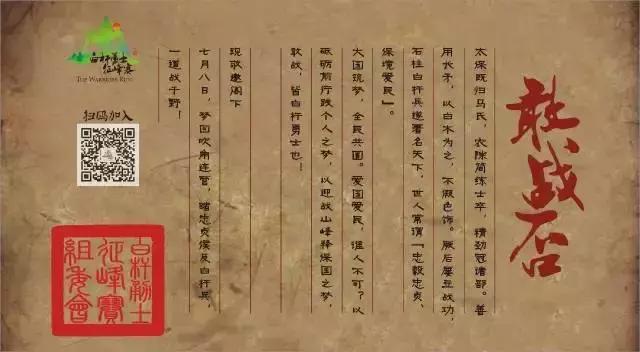 敢战否
太保既归马氏，农隙简练士卒，精劲冠诸部。善
用长矛，以白木为之，不假色饰。厥后屡立战功，
石柱白杆兵遂著名天下，世人常谓『忠毅忠贞、
保境爱民』。
大国筑梦，全民共圆。爱国爱民，谁人不可？以
砥砺前行践个人之梦，以迎战山峰释保国之梦，
敢战，皆白杆勇士也！
现敬邀阁下
七月八日，梦回吹角连营，随忠贞侯及白杆兵，
一道战于野！
白杆勇士
征峰赛
THE WARRIORS RUN
扫码加入
白杆勇士
征峰賽
組委會